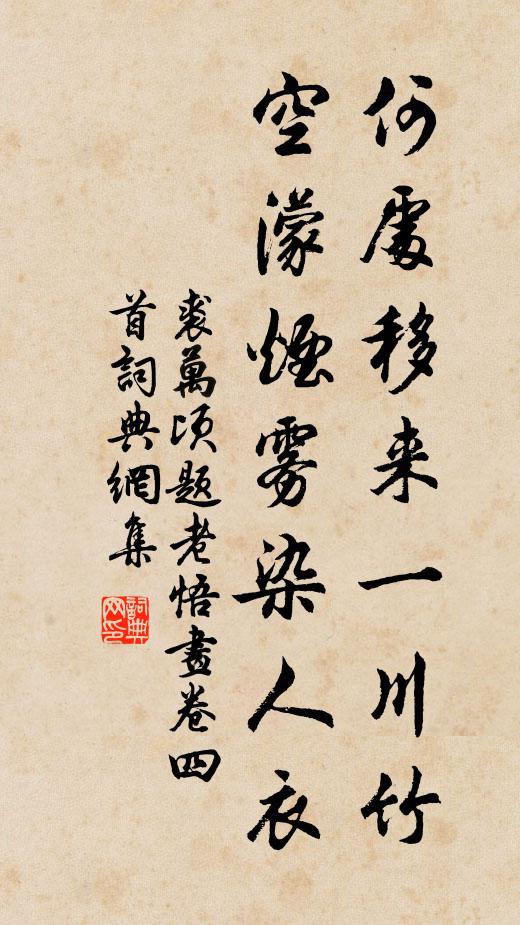 何處移来一川竹
空濛煙雾染人衣
裘萬頃题老悟畫卷四
首詞典網集
詞典网印